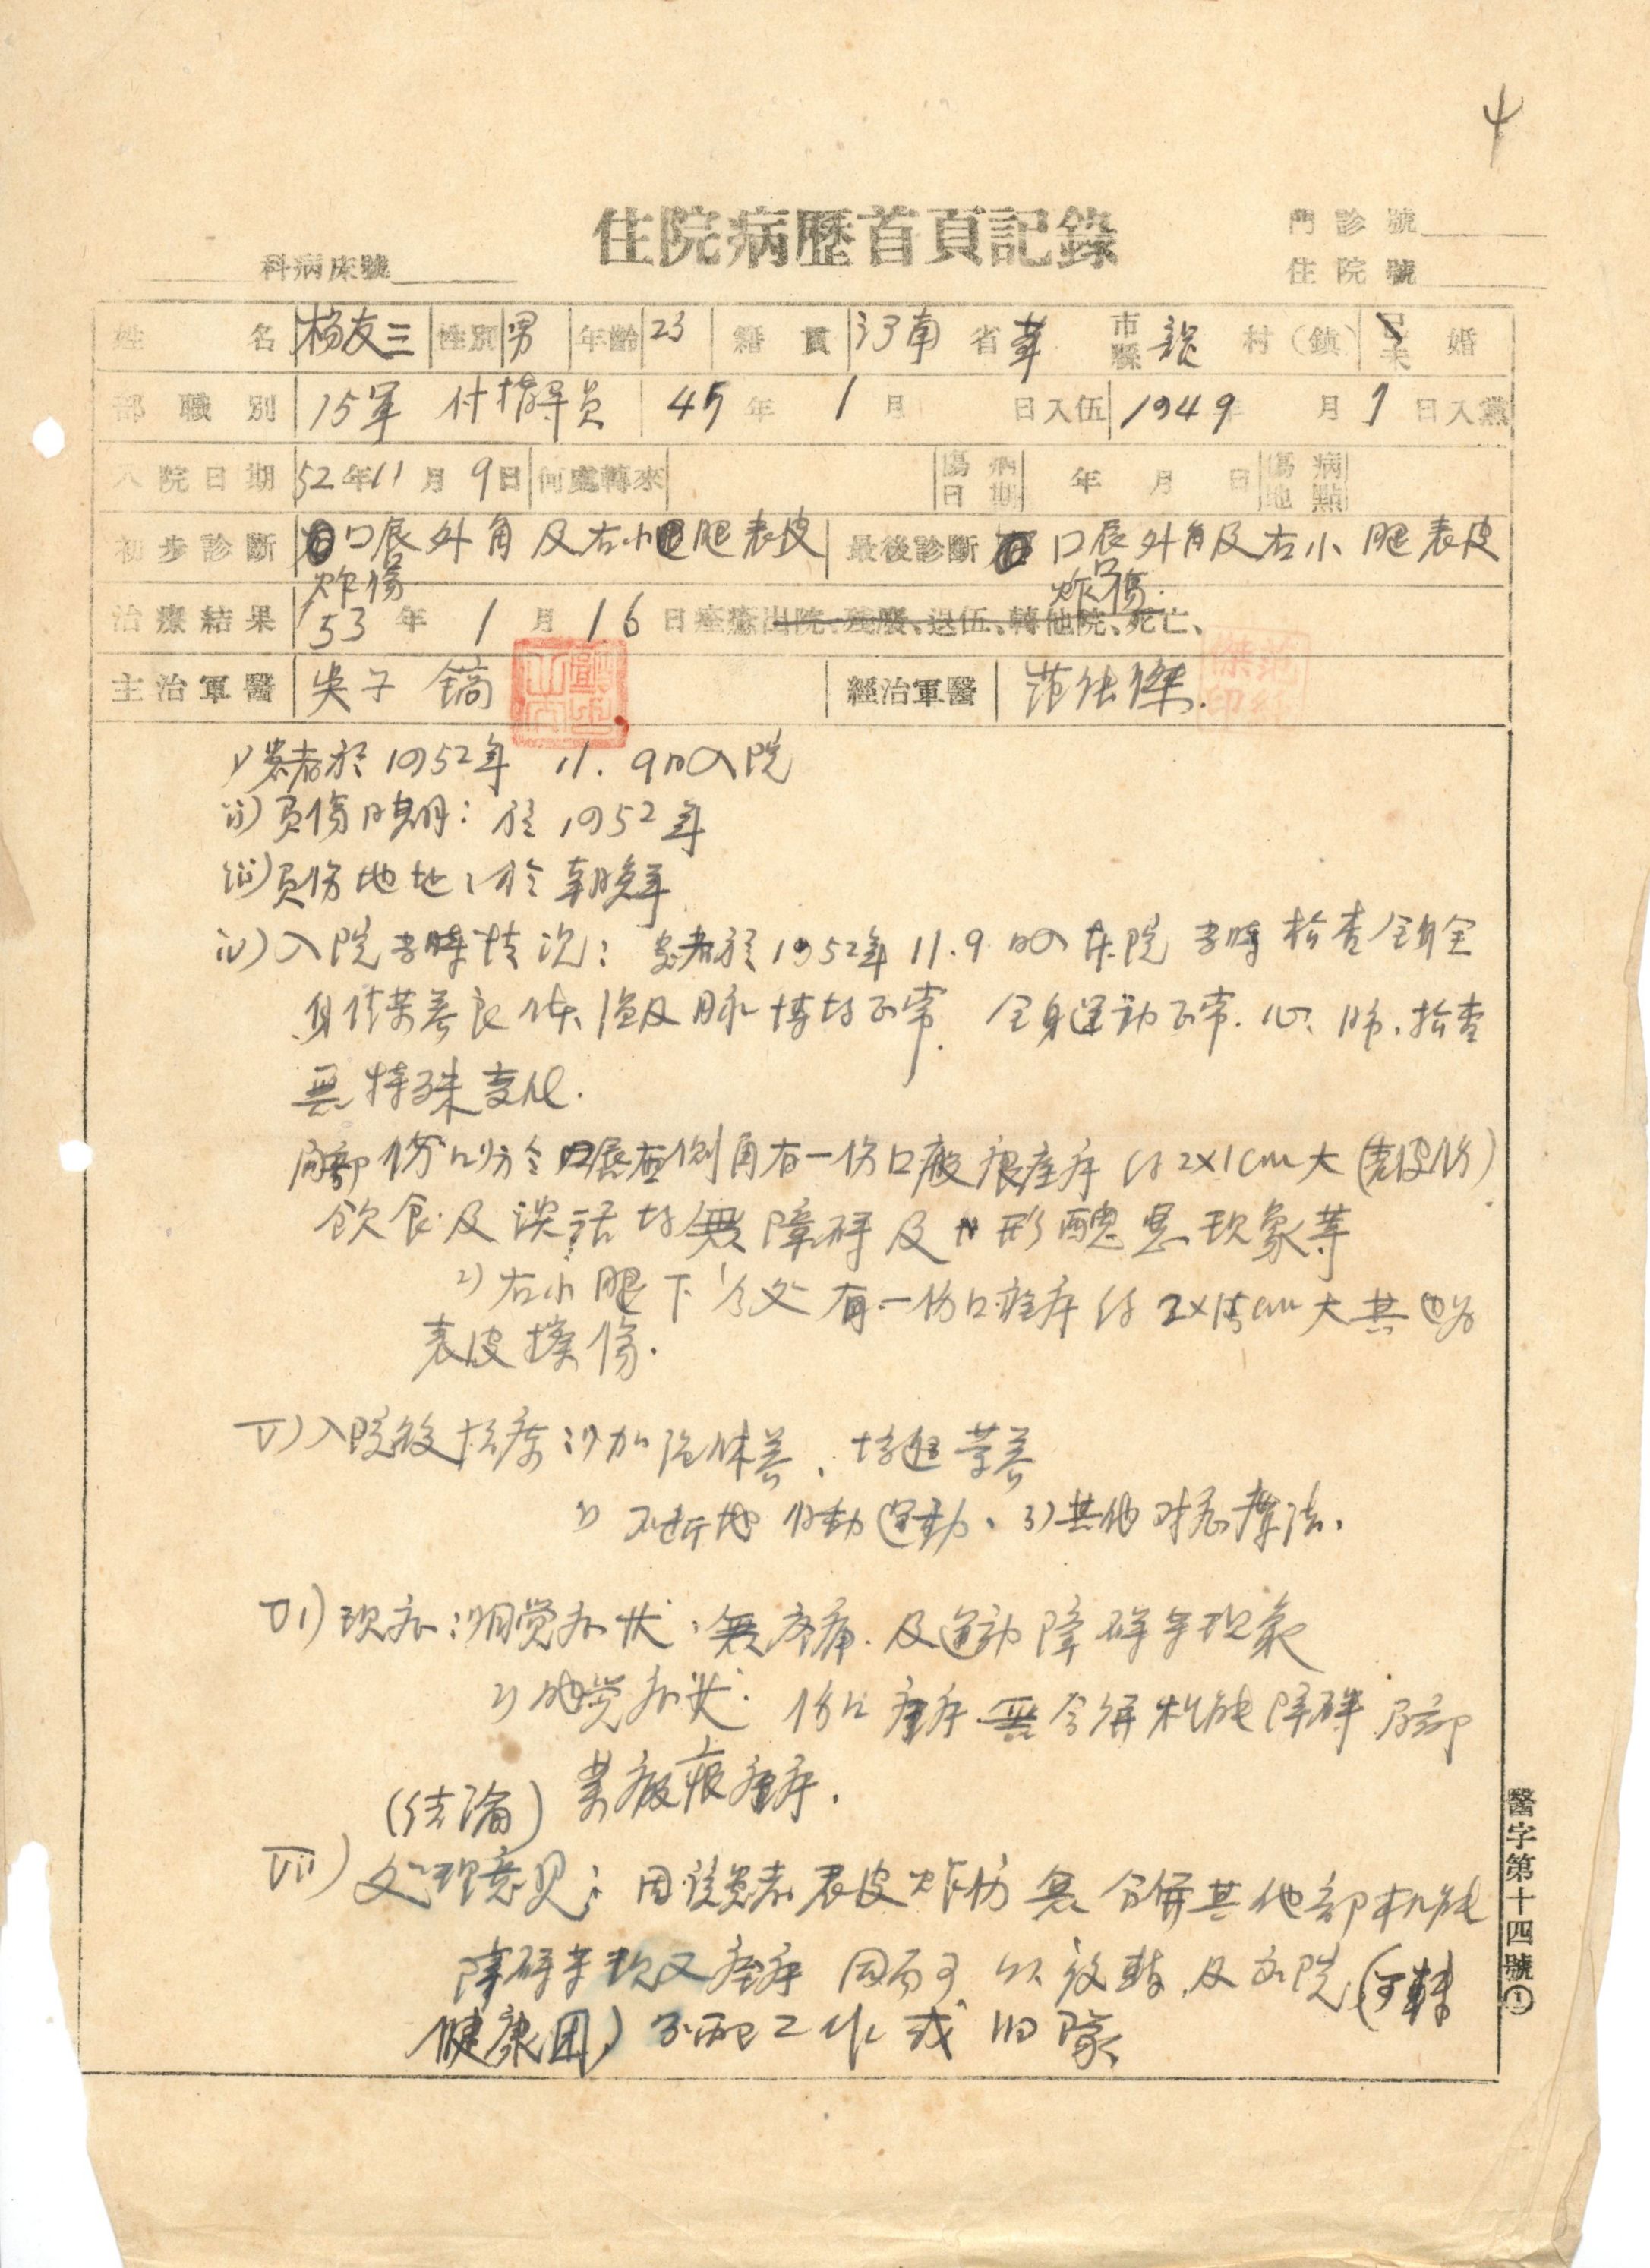 住院病歷首頁記錄
門診號
科病床號
住院號
姓名 杨友三 性別 男 年齡 23 籍貫 河南 省 葉 市縣 村(鎮) 已未 婚
部職別 15軍 付指導員 45年1月 日入伍 1949年 月7日入黨
入院日期 52年11月9日 何處轉來 傷病日期 年 月 日 傷病地點
初步診斷 口唇外角及右小腿表皮炸傷 最後診斷 口唇外角及右小腿表皮炸傷.
治療結果 53年1月16日痊癒出院、殘廢、退伍、轉他院、死亡、
主治軍醫 吳子鎬 經治軍醫 范纪傑.
i)患者於1952年11.9日入院
ii)負傷日期:於1952年
iii)負伤地址:於朝鮮
iv)入院当時情况:患者於1952年11.9日入本院 当時檢查全身
身住营养良体温及脉博均正常.全身運动正常.心、肺、拾查
無特殊变化.
局部伤口 口唇 侧角有一伤口瘢痕痊疒 约2×1cm大(表皮伤)
飲食及談话均無障碍及 形醜惡现象等
2)右小腿下 处有一伤口痊疒约 cm大其
表皮撲傷.
V)入院後抬療:1)加强休养、 营养
2)不断地 動運動、3)其他对症療法、
VI)现症:1)自觉症状:無疼痛.及運动障碍等现象
2)他觉症状.伤口痊疒無合併机能障碍 局部
瘢痕痊疒.
(结論)
VII)处理意見:因该患者表皮炸伤無合併其他部机能
障碍等现又痊疒因而可以 及 院(可轉
健康团)分配工作或归隊、
醫字第十四號①